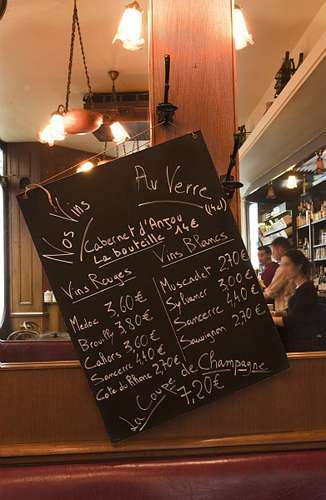 Nos Vins
Au Verre
(14cl)
Cabernet d'Anjou
La bouteille 14€
Vins Rouges
Medoc 3,60€
Brouilly 3,80€
Cahors 3,60€
Sancerre 4,40€
Cote du Rhone 2,70€
Vins Blancs
Muscadet 2,70€
Sylvaner 3,00€
Sancerre 4,40€
Sauvignon 2,70€
La Coupe de Champagne
7,20€